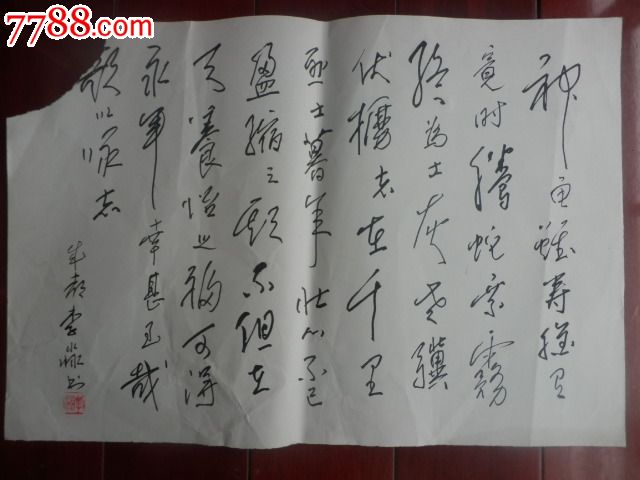 7788.com
神龟雖寿猶有
竟时騰蛇乘霧
終为土灰老驥
伏櫪志在千里
烈士暮年壮心不已
盈縮之期不但在
天養怡之福可得
永年幸甚至哉
歌以咏志
成都李书